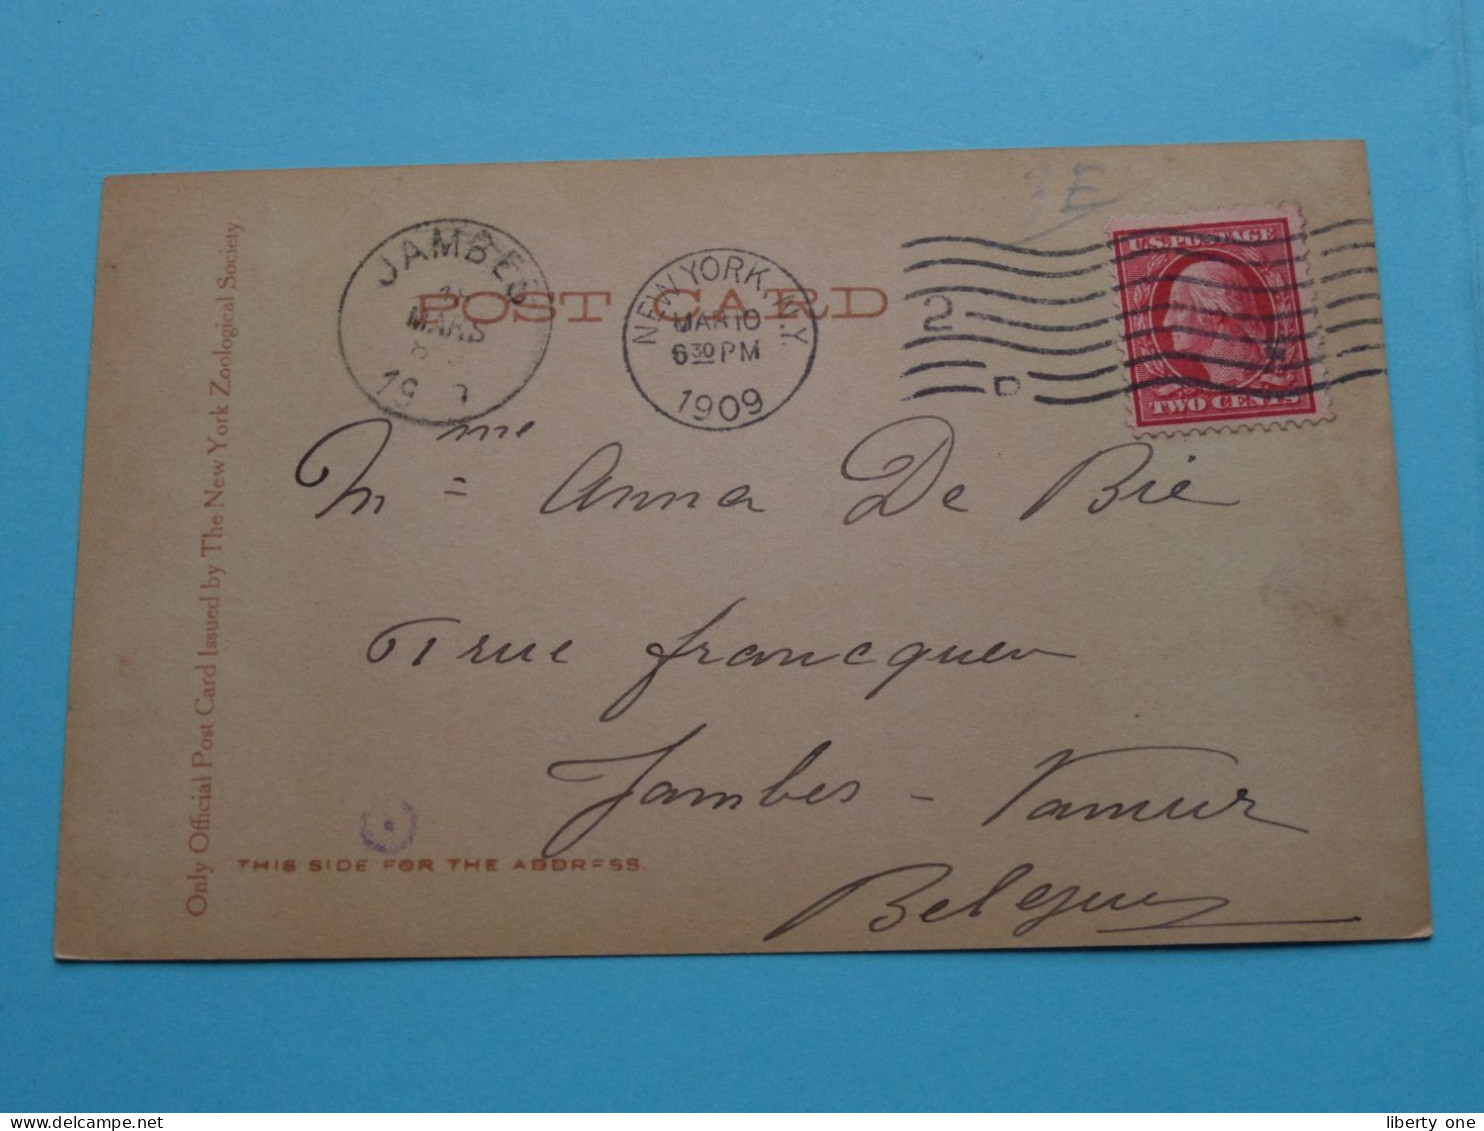 3E
U.S. POSTAGE
TWO CENTS
JAMBES
MARS
19
NEW YORK, N.Y.
MAR 10
6 30 PM
1909
2
D
POST CARD
Mme Anna De Bie
rue francquen
Jambes - Namur
Belgique
THIS SIDE FOR THE ADDRESS.
Only Official Post Card Issued by The New York Zoological Society
liberty one